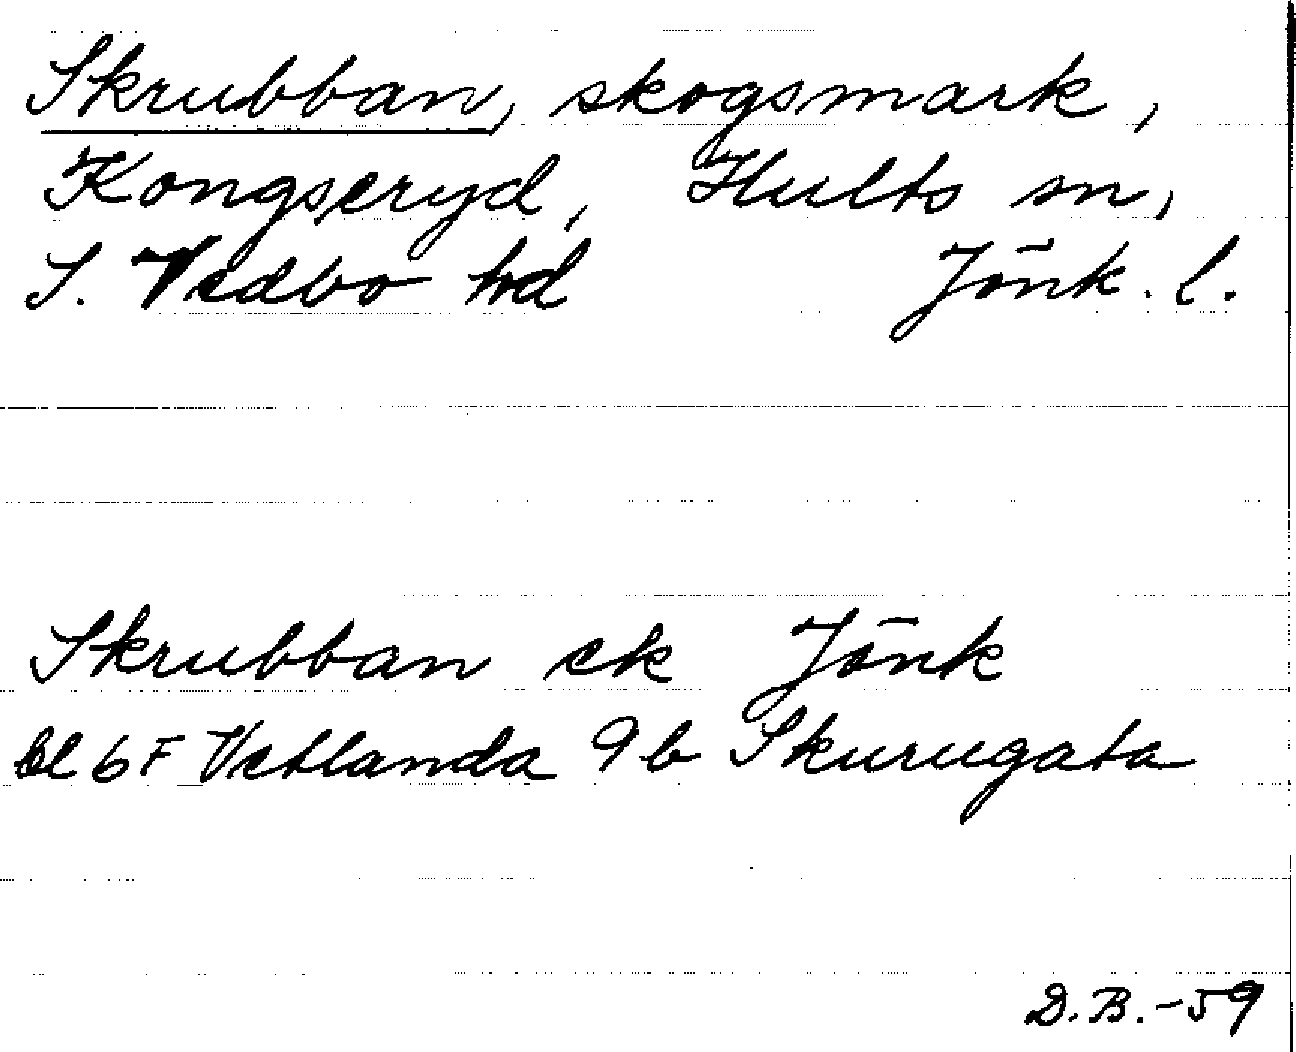 Skrubban, skogsmark,
Kongseryd, Hults sn,
S. Vedbo hd Jönk. l.
Skrubban ek Jönk
bl 6 F Vetlanda 9 b Skurugata
D.B.-59